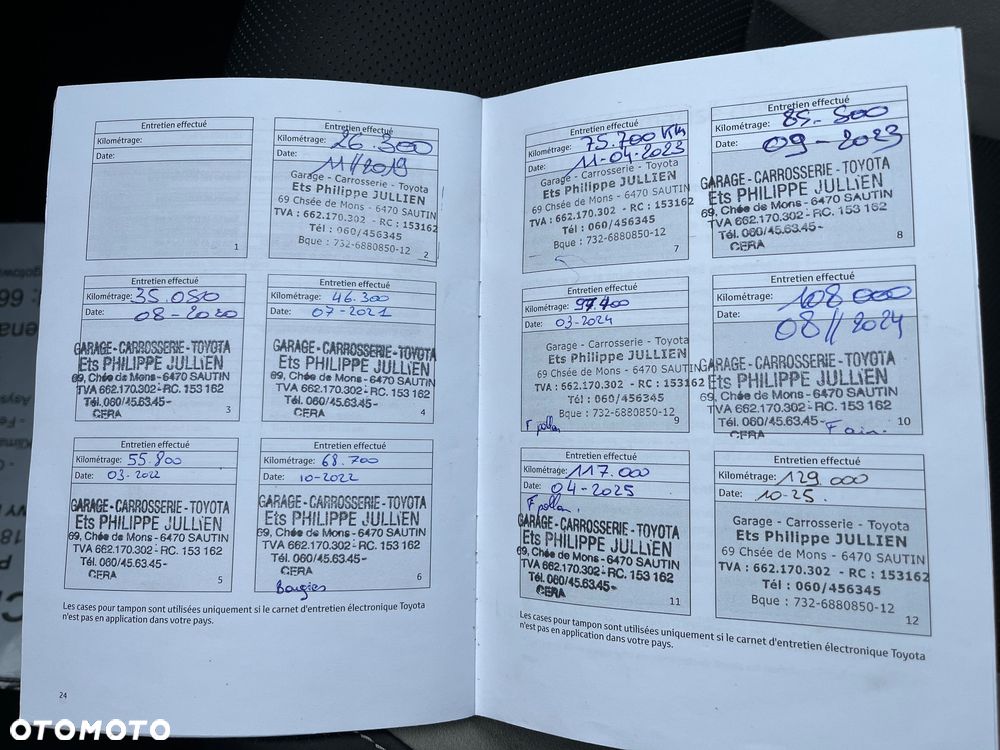 Entretien effectué
Kilométrage:
Date:
1
Entretien effectué
Kilométrage: 26.300
Date: 11/2019
Garage - Carrosserie - Toyota
Ets Philippe JULLIEN
69 Chsée de Mons - 6470 SAUTIN
TVA : 662.170.302 - RC : 153162
Tél : 060/456345
Bque : 732-6880850-12
2
Entretien effectué
Kilométrage: 35.080
Date: 08-2020
GARAGE-CARROSSERIE-TOYOTA
Ets PHILIPPE JULLIEN
69, Chée de Mons - 6470 SAUTIN
TVA 662.170.302 - RC. 153 162
Tél. 060/45.63.45-
CERA
3
Entretien effectué
Kilométrage: 46.300
Date: 07-2021
GARAGE-CARROSSERIE-TOYOTA
Ets PHILIPPE JULLIEN
69, Chée de Mons - 6470 SAUTIN
TVA 662.170.302 - RC. 153 162
Tél. 060/45.63.45-
CERA
4
Entretien effectué
Kilométrage: 55.800
Date: 03-2022
GARAGE-CARROSSERIE-TOYOTA
Ets PHILIPPE JULLIEN
69, Chée de Mons - 6470 SAUTIN
TVA 662.170.302 - RC. 153 162
Tél. 060/45.63.45-
CERA
5
Entretien effectué
Kilométrage: 68.700
Date: 10-2022
GARAGE-CARROSSERIE-TOYOTA
Ets PHILIPPE JULLIEN
69, Chée de Mons - 6470 SAUTIN
TVA 662.170.302 - RC. 153 162
Tél. 060/45.63.45-
CERA
6
Bougies
Les cases pour tampon sont utilisées uniquement si le carnet d'entretien électronique Toyota
n'est pas en application dans votre pays.
24
Entretien effectué
Kilométrage: 75.700 Km
Date: 11-04-2023
Garage - Carrosserie - Toyota
Ets Philippe JULLIEN
69 Chsée de Mons - 6470 SAUTIN
TVA : 662.170.302 - RC : 153162
Tél : 060/456345
Bque : 732-6880850-12
7
Entretien effectué
Kilométrage: 85.500
Date: 09-2023
GARAGE-CARROSSERIE-TOYOTA
Ets PHILIPPE JULLIEN
69, Chée de Mons - 6470 SAUTIN
TVA 662.170.302 - RC. 153 162
Tél. 060/45.63.45-
CERA
8
Entretien effectué
Kilométrage:
Date: 03-2024
Garage - Carrosserie - Toyota
Ets Philippe JULLIEN
69 Chsée de Mons - 6470 SAUTIN
TVA : 662.170.302 - RC : 153162
Tél : 060/456345
Bque : 732-6880850-12
9
F pollen
Entretien effectué
Kilométrage: 108 000
Date: 08// 2024
GARAGE-CARROSSERIE-TOYOTA
Ets PHILIPPE JULLIEN
69, Chée de Mons - 6470 SAUTIN
TVA 662.170.302 - RC. 153 162
Tél. 060/45.63.45-
CERA
F air.
10
Entretien effectué
Kilométrage: 117.000
Date: 04-2025
F pollen.
GARAGE-CARROSSERIE-TOYOTA
Ets PHILIPPE JULLIEN
69, Chée de Mons - 6470 SAUTIN
TVA 662.170.302 - RC. 153 162
Tél. 060/45.63.45-
CERA
11
Entretien effectué
Kilométrage: 129.000
Date: 10-25.
Garage - Carrosserie - Toyota
Ets Philippe JULLIEN
69 Chsée de Mons - 6470 SAUTIN
TVA : 662.170.302 - RC : 153162
Tél : 060/456345
Bque : 732-6880850-12
12
Les cases pour tampon sont utilisées uniquement si le carnet d'entretien électronique Toyota
n'est pas en application dans votre pays.
OTOMOTO